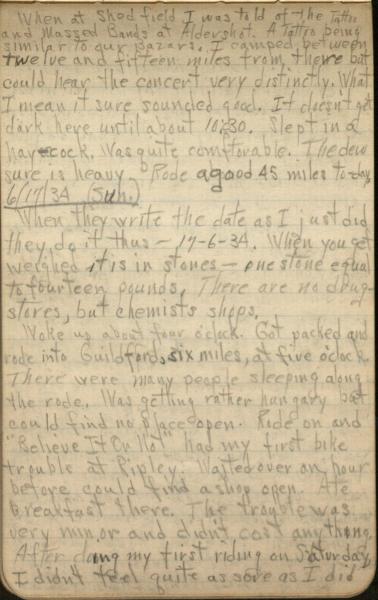 When at Shedfield I was told of the Tattoo
and Massed Bands at Aldershot. A Tattoo being
similar to our Bazars. I camped between
twelve and fifteen miles from there but
could hear the concert very distinctly. What
I mean it sure sounded good. It doesn't get
dark here until about 10:30. Slept in a
haycock. Was quite comfortable. The dew
sure is heavy. Rode a good 45 miles to-day
6/17/34 (Sun.)
When they write the date as I just did
they do it thus — 17-6-34. When you get
weighed it is in stones — one stone equal
to fourteen pounds. There are no drug-
stores, but chemists shops.
Woke up about four o'clock. Got packed and
rode into Guildford, six miles, at five o'clock.
There were many people sleeping along
the rode. Was getting rather hungary but
could find no place open. Ride on and
"Believe It Or Not" had my first bike
trouble at Ripley. Waited over an hour
before could find a shop open. Ate
Breakfast there. The trouble was
very minor and didn't cost anything.
After doing my first riding on Saturday,
I didn't feel quite as sore as I did